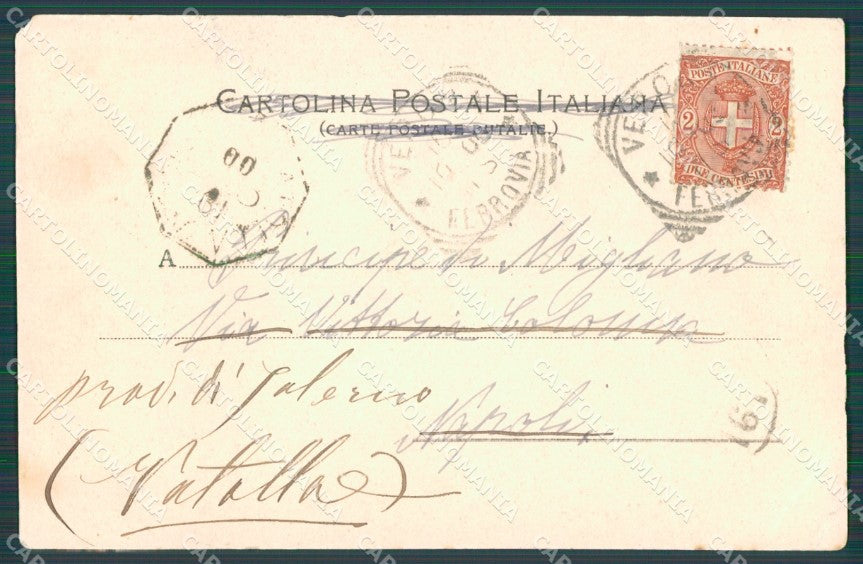 CARTOLINA POSTALE ITALIANA
(CARTE POSTALE D'ITALIE.)
POSTE ITALIANE
2 2
DUE CENTESIMI
VERO
FERROVIA
VERO
FERROVIA
00
A Principe di Migliano
Via Vittoria Colonna
Napoli
prov. di Salerno
(Vatolla)
61
CARTOLINOMANIA